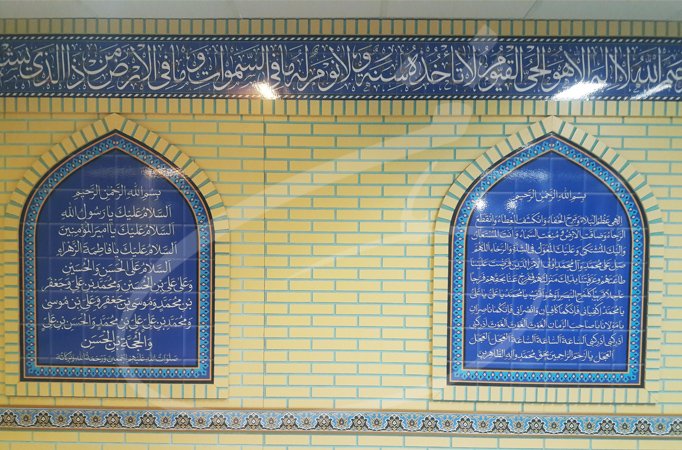 الله لا اله الا هو الحی القیوم لا تاخذه سنة ولا نوم له ما فی السموات و ما فی الارض من ذا الذی
بسم الله الرحمن الرحیم
الهی عظم البلاء و برح الخفاء وانکشف الغطاء وانقطع
الرجاء وضاقت الارض و منعت السماء و انت المستعان
والیک المشتکی و علیک المعول فی الشدة والرخاء اللهم
صل علی محمد و ال محمد اولی الامر الذین فرضت علینا
طاعتهم و عرفتنا بذلک منزلتهم ففرج عنا بحقهم فرجا
عاجلا قریبا کلمح البصر او هو اقرب یا محمد یا علی یا علی
یا محمد اکفیانی فانکما کافیان وانصرانی فانکما ناصران
یا مولانا یا صاحب الزمان الغوث الغوث الغوث ادرکنی
ادرکنی ادرکنی الساعة الساعة الساعة العجل العجل
العجل یا ارحم الراحمین بحق محمد و اله الطاهرین
بسم الله الرحمن الرحیم
السلام علیک یا رسول الله
السلام علیک یا امیرالمؤمنین
السلام علیک یا فاطمة الزهراء
السلام علی الحسن و الحسین
وعلی علی بن الحسین و محمد بن علی و جعفر
بن محمد و موسی بن جعفر و علی بن موسی
و محمد بن علی و علی بن محمد و الحسن بن علی
و الحجة بن الحسن
صلوات الله علیهم اجمعین و رحمة الله و برکاته